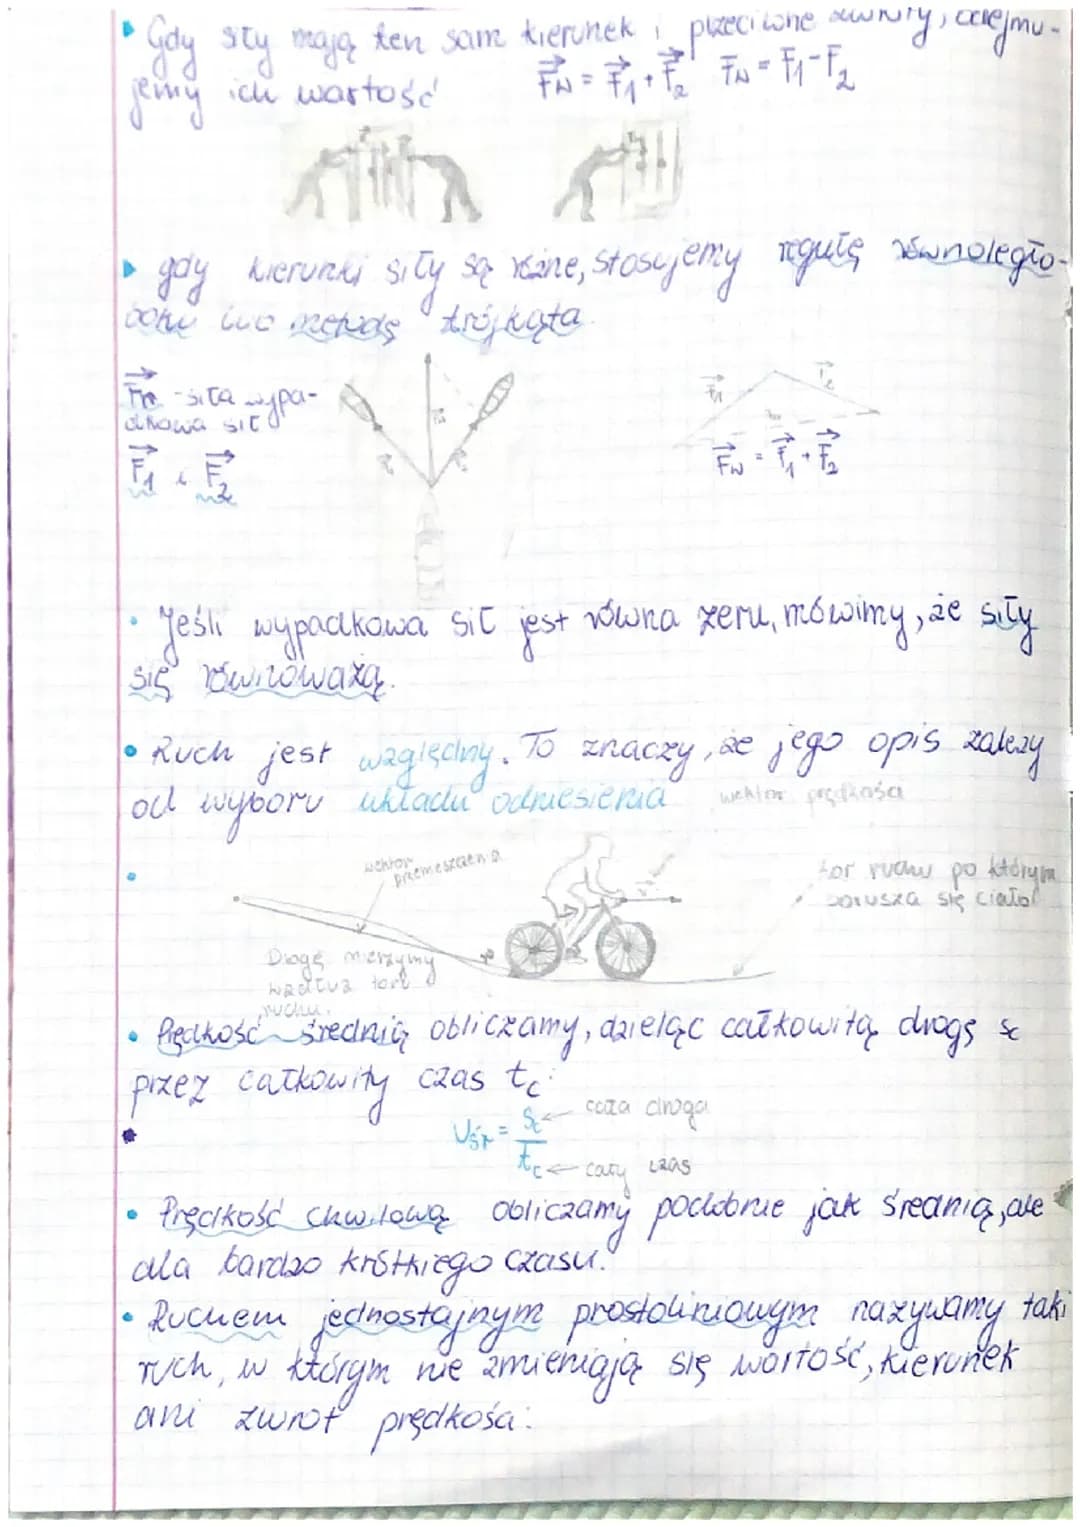 Gdy siły mają ten sam kierunek i przeciwne zwroty, odejmu-
jemy ich wartość F⃗w = F⃗1 + F⃗2 Fw = F1 - F2
gdy kierunki siły są różne, stosujemy regułę równoległo-
boku lub metodę trójkąta
- siła wypa-
dkowa sił
F⃗1 i F⃗2
F⃗1
F⃗w = F⃗1 + F⃗2
Jeśli wypadkowa sił jest równa zeru, mówimy, że siły
się równoważą.
Ruch jest względny. To znaczy, że jego opis zależy
od wyboru układu odniesienia
wektor prędkości
wektor
przemieszczenia
tor ruchu po którym
porusza się ciało
Drogę mierzymy
wzdłuż toru
ruchu.
Prędkość średnią obliczamy, dzieląc całkowitą drogę sc
przez całkowity czas tc:
Uśr = sc/tc
cała droga
cały czas
Prędkość chwilową obliczamy podobnie jak średnią, ale
dla bardzo krótkiego czasu.
Ruchem jednostajnym prostoliniowym nazywamy taki
ruch, w którym nie zmieniają się wartość, kierunek
ani zwrot prędkości: